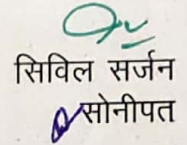 सिविल सर्जन
सोनीपत